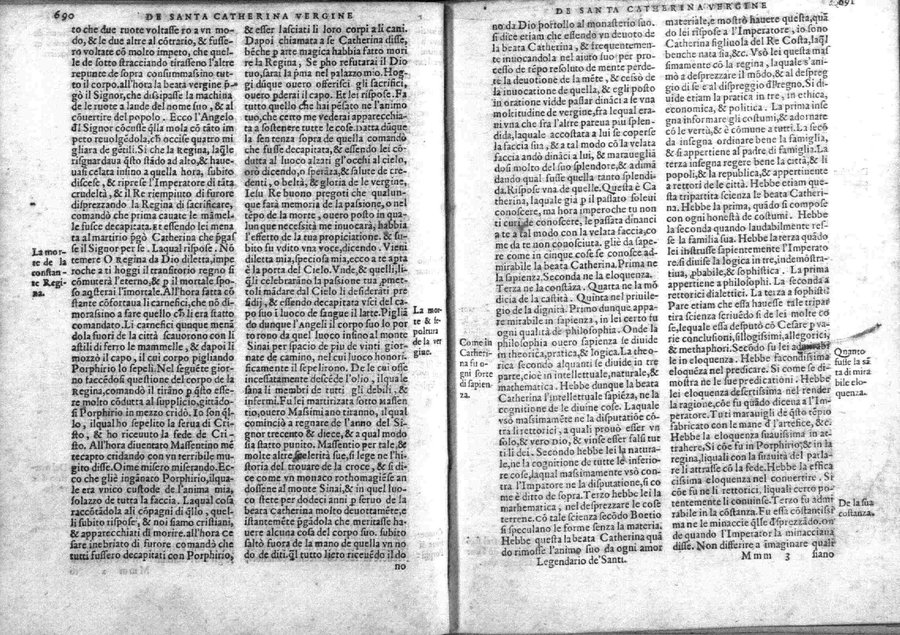 690 DE SANTA CATHERINA VERGINE
to che due ruote voltasse ro a vn mo-
do, & le due altre al cõtrario, & fusse-
ro voltate cõ molto impeto, che quel-
le de sotto stracciando tirassero l'altre
repunte de sopra consummassino tut-
to il corpo. all'hora la beata vergine p-
gò il Signor, che dissipasse la machina
de le ruote a lande del nome suo, & al
cõuertire del popolo. Ecco l'Angelo
dl Signor
peto
gliara de gētili. Si che la regina,
risguardaua
uasi celata insino a quella hora, subito
discese, & riprese l'Imperatore di rāta
crudeltà, & il Re riempiuto di furore
disprezzando la Regina di sacrificare,
comandò che prima cauate le māmel-
le fusse decapitata. Et essendo lei mena
ta al martirio pgò Catherina che pgas
se il Signor per se. Laqual rispose. Nõ
temere O Regina da Dio diletta, impe
roche a ti hoggi il transitorio regno si
cõmuterà l'eterno, & p il mortale spo-
so aqsterai l'īmortale. All'hora fatta cõ
stante cõfortaua li carnefici, che nõ di-
morassino a fare quello era stato
comandato. Li carnefici qunque menā
dola fuori de la città scauorono con li
astili di ferro le mammelle, & dapoi li
mozzò il capo, il cui corpo pigliando
Porphirio lo sepelì. Nel seguēte gior-
no facēdosi questione del corpo de la
Regina, comandò il tirāno p qsto esse-
re molto cõdutti al supplicio, gittādo-
si Porphirio in mezzo cridò. Io son ql-
lo, ilqual ho sepelito la serua di Chri-
sto, & ho riceuuto la fede de Cri-
sto. All'hora diuentato Massentino mē
tecapto cridando con vn terribile mu-
gito disse. Oime misero miserando. Ec-
co che gliè ingānato Porphirio, ilqua-
le era vnico custode de l'anima mia,
solazo de tutta la faccia. Laqual cosa
raccõtādola ali cõpagni di qllo, quel-
li subito rispose, & noi siamo cristiani,
& apparecchiati di morire. all'hora ce
sare inebriato di furore comandò che
tutti fussero decapitati con Porphirio,
La mor-
te de la
constan-
te Regi-
na.
& esser lasciati li loro corpi ali cani.
Dapoi chiamata a se Catherina disse,
bēche p arte magica habbia fatto mori
re la Regina, Se pho refutarai il Dio
tuo, sarai la pma nel palazzo mio. Hog-
gi dūque ouero offerisci gli sacrifici,
ouero pderai il capo. Et lei rispose. Fa
tutto quello che hai pēsato ne l'animo
tuo, che certo me vederai apparecchia-
ta a sostenere tutte le cose. Data dūque
la sentenza sopra de quella comandò
che fusse decapitata, & essendo lei cõ-
dutta al luoco alzati gl'occhi al cielo,
orò dicendo, o sperāza, & salute de cre-
denti, o beltà, & gloria de le vergine,
Iesu Re buono pregoti che qualun-
que farà memoria de la passione, o nel
tēpo de la morte, ouero posto in qua-
lun que necessità me inuocarà, habbia
l'effetto de la tua propiciatione. & su-
bito fu vdita vna voce, dicendo. Vieni
diletta mia, speciosa mia, ecco a te apta
è la porta del Cielo. Vnde, & quelli, li-
qli celebrarano la passione tua pmet-
toli mādare dal Cielo li desiderati pre-
sidij, & essendo decapitata vscì del ca-
po suo ī luoco di sangue il latte. Pigliā
do dunque l'Angeli il corpo suo lo por
torono da quel luoco insino al monte
Sinai per spacio de piu de vinti gior-
nate de camino, nel cui luoco honori-
ficamente il sepelirono. De le cui osse
incessatamente descēde l'olio, ilqual
sana li membri de tutti gli debili, &
infermi. Fu lei martirizata sotto Massen
tio, ouero Massimiano tiranno, il qual
cominciò a regnare de l'anno del Si-
gnor trecento & diece, & a qual modo
sia stato punito Massentio per tale, &
molte altre selerità sue, si lege ne l'hi-
storia del trouare de la croce, & si di-
ce come vn monaco rothomagiese an
dosse al monte Sinai, & in quel luo-
co stete per dodeci anni p seruo de la
beata Catherina molto deuottamēte, e
istantemēte pgādola che meritasse ha-
uere alcuna cosa del corpo suo. subito
saltò fuora de la mano de quella vn no
do de diti. ql tutto lieto riceuēdo il do
no
La mor
te & se-
poltura
de la ver
gine.
DE SANTA CATHERINA VERGINE 691
no da Dio portollo al monasterio suo.
si dice etiam che essendo vn deuoto de
la beata Catherina, & frequentemen-
te inuocandola nel aiuto suo: per pro-
cesso de tēpo resoluto de mente perde-
te la deuotione de la mēte, & cessò de
la inuocatione de quella, & egli posto
in oratione vidde passar dināci a se vna
moltitudine de vergine, fra lequal era-
ni vna che fra l'altre pareua piu splen-
dida, laquale accostata a lui se coperse
la faccia sua, & a tal modo cõ la velata
faccia andò dināci a lui, & marauegliā
dosi molto del suo splendore, & adimā
dando qual fusse quella tanto splendi-
da. Rispose vna de quelle. Questa è Ca
therina, laquale già p il passato soleui
conoscere, ma hora imperoche tu non
ti curi de conoscere, le passata dinanci
a te a tal modo con la velata faccia, co
me da te non conosciuta. gliè da sape-
re come in cinque cose se conosce ad-
mirabile la beata Catherina. Prima ne
la sapienza. Seconda ne la eloquenza.
Terza ne la constāza. Quarta ne la mõ
dicia de la castità. Quinta nel priuile-
gio de la dignità. Primo dunque appa-
re mirabile in sapienza, in lei certo fu
ogni qualità de philosophia. Onde la
philosophia ouero sapienza se diuide
in theorica, pratica, & logica. La theo-
rica secondo alquanti se diuide in tre
parte, cioè in intellettuale, naturale, &
mathematica. Hebbe dunque la beata
Catherina l'intellettuale sapiēza, ne la
cognitione de le diuine cose. Laquale
vsò massimamente ne la disputatiõe cõ-
tra li rettorici, a quali prouò esser vn
solo, & vero Dio, & vinse esser falsi tut
ti li dei. Secondo hebbe lei la natura-
le, ne la cognitione de tutte le inferio-
re cose, laqual massimamente vsò con-
tra l'Imperatore ne la disputatione, si co
me è ditto de sopra. Terzo hebbe lei la
mathematica, nel despreezare le cose
terrene. Cõ tale scienza secõdo Boetio
si speculano le forme senza la materia.
Hebbe questa la beata Catherina quā
do rimosse l'animo suo da ogni amor
Legendario de' Santi.
Come in
Catheri-
na fu o-
gni sorte
di sapien-
za.
materiale, e mostrò hauere questa, quā
do lei rispose a l'Imperatore, io sono
Catherina figliuola del Re Costa, laql
benche nata sia, &c. Vsò lei questa mas
simamente cõ la regina, laquale s'ani-
mò a desprezzare il mõdo, & al despreg
gio di se e al dispreggio dl regno. Si di-
uide etiam la pratica in tre, in ethica,
economica, & politica. La prima inse
gna informare gli costumi, & adornare
cõ le vertù, & è cõmune a tutti. La secõ
da insegna ordinare bene la famiglia,
& si appertiene al padre di famiglia. La
terza insegna regere bene la città, & li
popoli, & la republica, & appertinente
a rettori de le città. Hebbe etiam que-
sta tripartita scienza la beata Catheri-
na. Hebbe la prima, quādo si compose
con ogni honestà de costumi. Hebbe
la seconda quando laudabilmente res-
se la famiglia sua. Hebbe la terza quādo
lei instrusse sapientemente l'Imperato
re. si diuide la logica in tre, indemõstra-
tiua, pbabile, & sophistica. La prima
appertiene a philosophi. La seconda a
rettorici dialettici. La terza a sophisti
Pare etiam che essa hauesse tale tripar
tita scienza scriuēdo si de lei molte co
se, lequale essa desputò cõ Cesare p va-
rie conclusioni, sillogisimi, allegorici,
& methaphori. Secõdo fu lei admirabi
le in eloquenza. Hebbe facondissima
eloquēza nel predicare. Si come se di-
mostra ne le sue predicationi. Hebbe
lei eloquenza desertissima nel render
la ragione, cõe fu quādo diceua a l'Im-
peratore. Tu ti marauigli de qsto tēpio
fabricato con le mane d'artefice, &c.
Hebbe la eloquenza suauissima in at-
trahere. Si cõe fu in Porphirio, & in la
regina, liquali con la suauità del parla-
re li attrasse cõ la fede. Hebbe la effica
cissima eloquenza nel conuertire. Si
cõe fu ne li rettorici, liquali certo po-
tentemente li conuinse. Terzo fu ad-
mirabile in la cõstanza. Fu essa cõstantissi
ma ne le minaccie qlle disprezzādo. on
de quando l'Imperator la minacciua
disse. Non differire a imaginare quale
Mmm 3 siano
Quanto
fusse la sā
ta di mira
bile elo-
quenza.
De la sua
costanza.